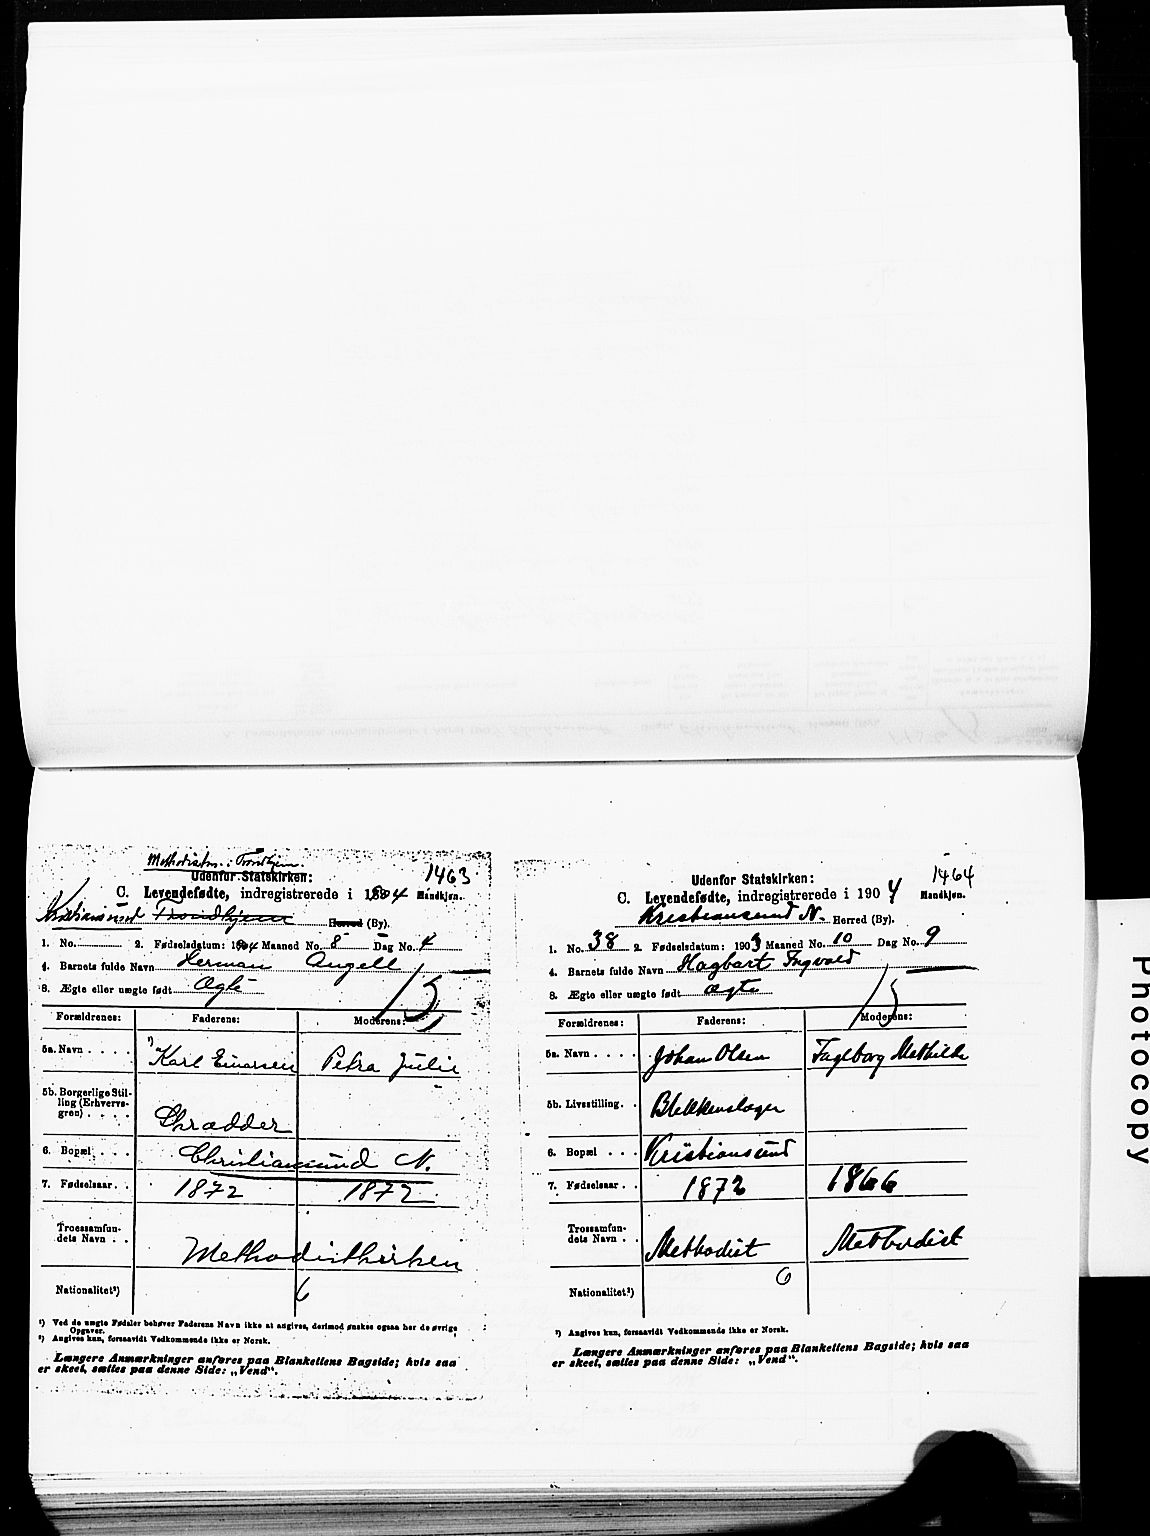 Methodistm. i Trondhjem.
1463
Udenfor Statskirken:
C. Levendefødte, indregistrerede i 1904 Mandkjøn.
Kristiansund Trondhjem Herred (By).
1. No. 2. Fødselsdatum: 1904 Maaned No. 8 Dag No. 4
4. Barnets fulde Navn Herman Angell
8. Ægte eller uægte født Ægte
15
Forældrenes: Faderens: Moderens:
5a. Navn . . . . ¹) Karl Einarsen Petra Julie
5b. Borgerlige Stil-
ling (Erhvervs-
gren) . . . .
Skrædder
6. Bopæl . . . Christiansund N.
7. Fødselsaar. . 1872 1872
Troessamfun-
dets Navn . . Methodistkirken
6
Nationalitet²)
¹) Ved de uægte Fødsler behøver Faderens Navn ikke at angives, derimod ønskes ogsaa her de øvrige
Opgaver.
²) Angives kun, forsaavidt Vedkommende ikke er Norsk.
Længere Anmærkninger anføres paa Blankettens Bagside; hvis saa
er skeet, sættes paa denne Side: „Vend“.
1464
Udenfor Statskirken:
C. Levendefødte, indregistrerede i 1904 Mandkjøn.
Kristiansund N. Herred (By).
1. No. 38 2. Fødselsdatum: 1903 Maaned No. 10 Dag No. 9
4. Barnets fulde Navn Hagbart Ingvald
8. Ægte eller uægte født ægte
15
Forældrenes: Faderens: Moderens:
5a. Navn . . . . Johan Olsen Ingeborg Mathilde
5b. Livsstilling. . Blikkenslager
6. Bopæl . . . Kristiansund
7. Fødselsaar . . 1872 1866
Trossamfun-
dets Navn . . Methodist Methodist
6
Nationalitet²)
²) Angives kun, forsaavidt Vedkommende ikke er Norsk.
Længere Anmærkninger anføres paa Blankettens Bagside; hvis saa
er skeet, sættes paa denne Side: „Vend“.
Photocopy